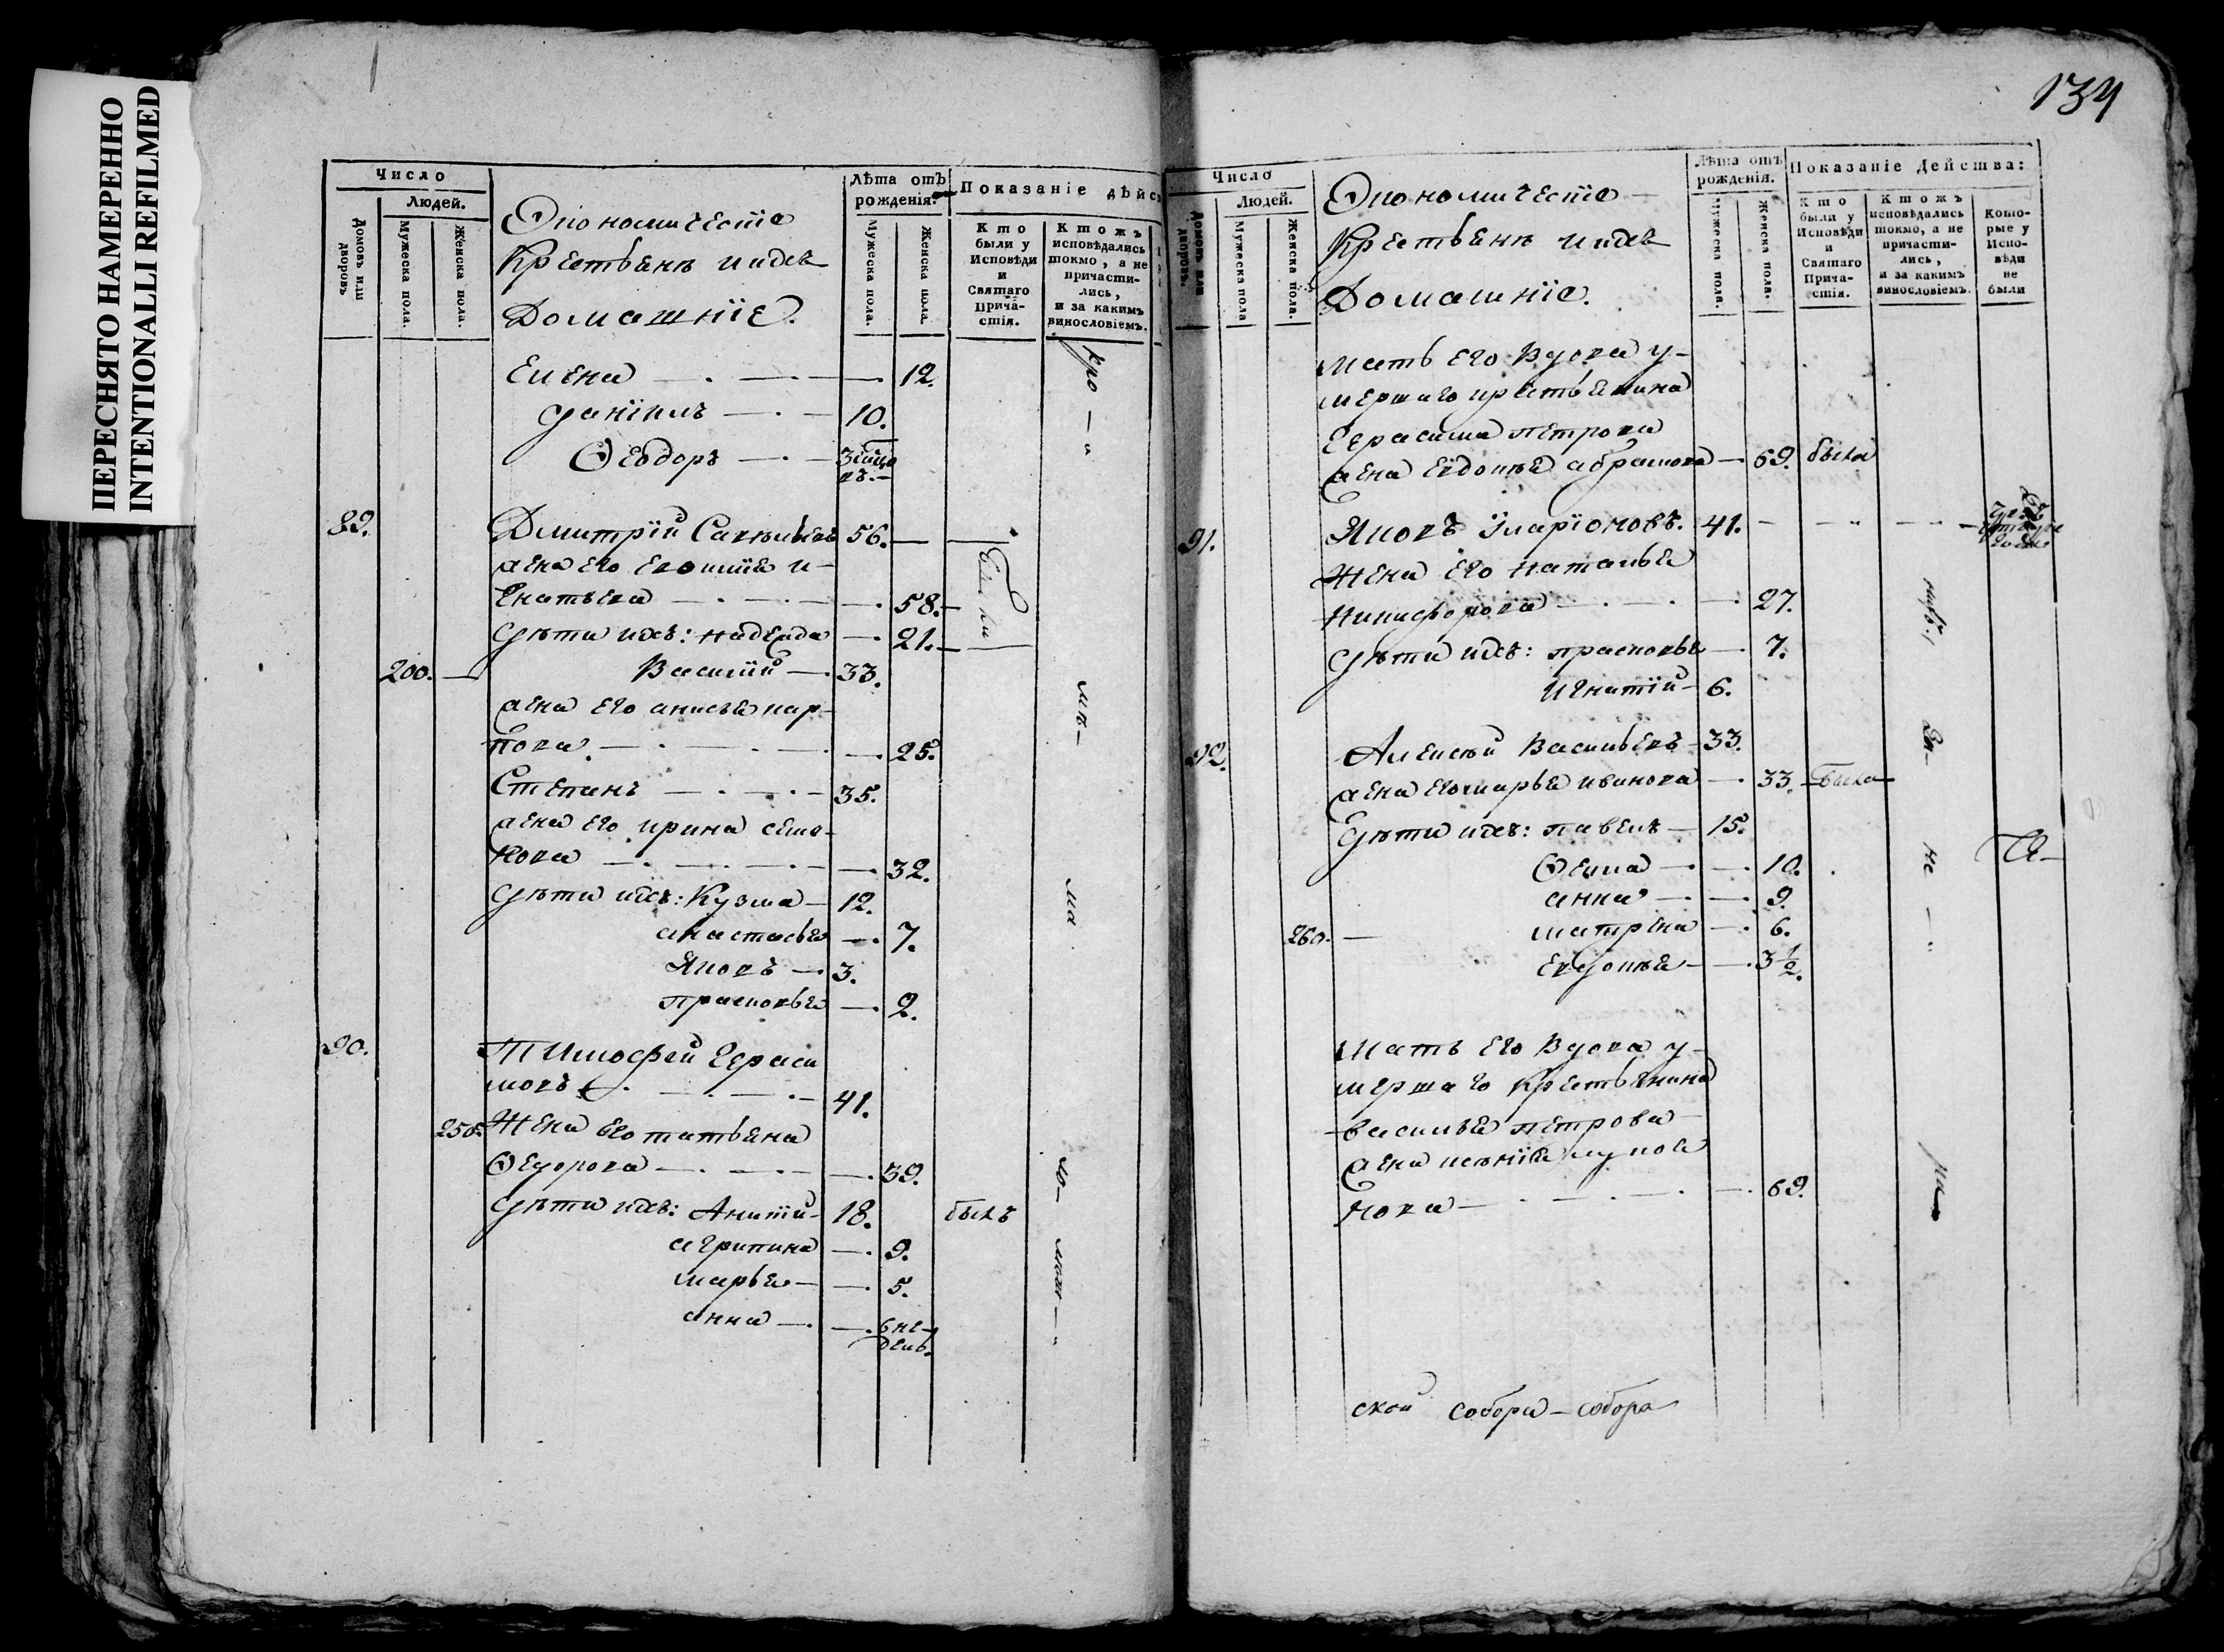 ПЕРЕСНЯТО НАМЕРЕННО
INTENTIONALLI REFILMED
134
Число
Людей.
Домовъ или дворовъ
Мужеска пола.
Женска пола.
Ѳкономическіе
Крестьяне и ихъ
Домашніе.
Лѣта отъ рожденія.
Мужеска пола.
Женска пола.
Показаніе дѣйс
Кто были у Исповѣди и Святаго Прича-стія.
Ктожъ исповѣдались токмо, а не причасти-лись, и за какимъ винословіемъ.
Елена — 12.
Даніилъ — 10.
Ѳеодоръ —
89. Дмитрій Савельевъ 56.
жена его Евфимія И-
гнатьева — 58.
дѣти ихъ: Надежда — 21.
были
200. — Василій — 33.
жена его Анисья Кар-
пова — 25.
Степанъ — 35.
жена его Ирина Семе-
нова — 32.
дѣти ихъ: Кузма — 12.
Анастасья — 7.
Яковъ — 3.
Прасковья — 2.
90. Тимофей Гераси
мовъ — 41.
250. Жена его Татьяна
Ѳедорова — 39.
дѣти ихъ: 18. былъ
Агрипина — 9.
Марья — 5.
Анна — 6 не-
дель.
Число
Людей.
Домовъ или дворовъ.
Мужеска пола
Женска пола.
Ѳкономическіе
Крестьяне и ихъ
Домашніе.
Лѣта отъ рожденія.
Мужеска пола.
Женска пола.
Показаніе Дейсшва:
Кто были у Исповѣди и Святаго Прича-стія.
Ктожъ исповѣдались токмо, а не причасти-лись, и за какимъ винословіемъ.
Кото-рые у Испо-вѣди не были
мать его вдова у-
мершаго крестьянина
Герасима Петрова
жена Евдокія Абрамова — 69. была
91. Яковъ Иларіоновъ. 41.
Жена его Наталья
Никифорова — 27.
дѣти ихъ: Прасковья — 7.
Игнатій — 6.
92. Алексѣй Васильевъ — 33.
жена его Марья Иванова — 33. была
дѣти ихъ: Павелъ — 15.
Ѳекла — 10.
Анна — 9.
260. — Матрена — 6.
Евдокія — 3 1/2.
Мать его вдова у-
мершаго крестьянина
Василья Петрова
жена
нова — 69.
ской собора собора